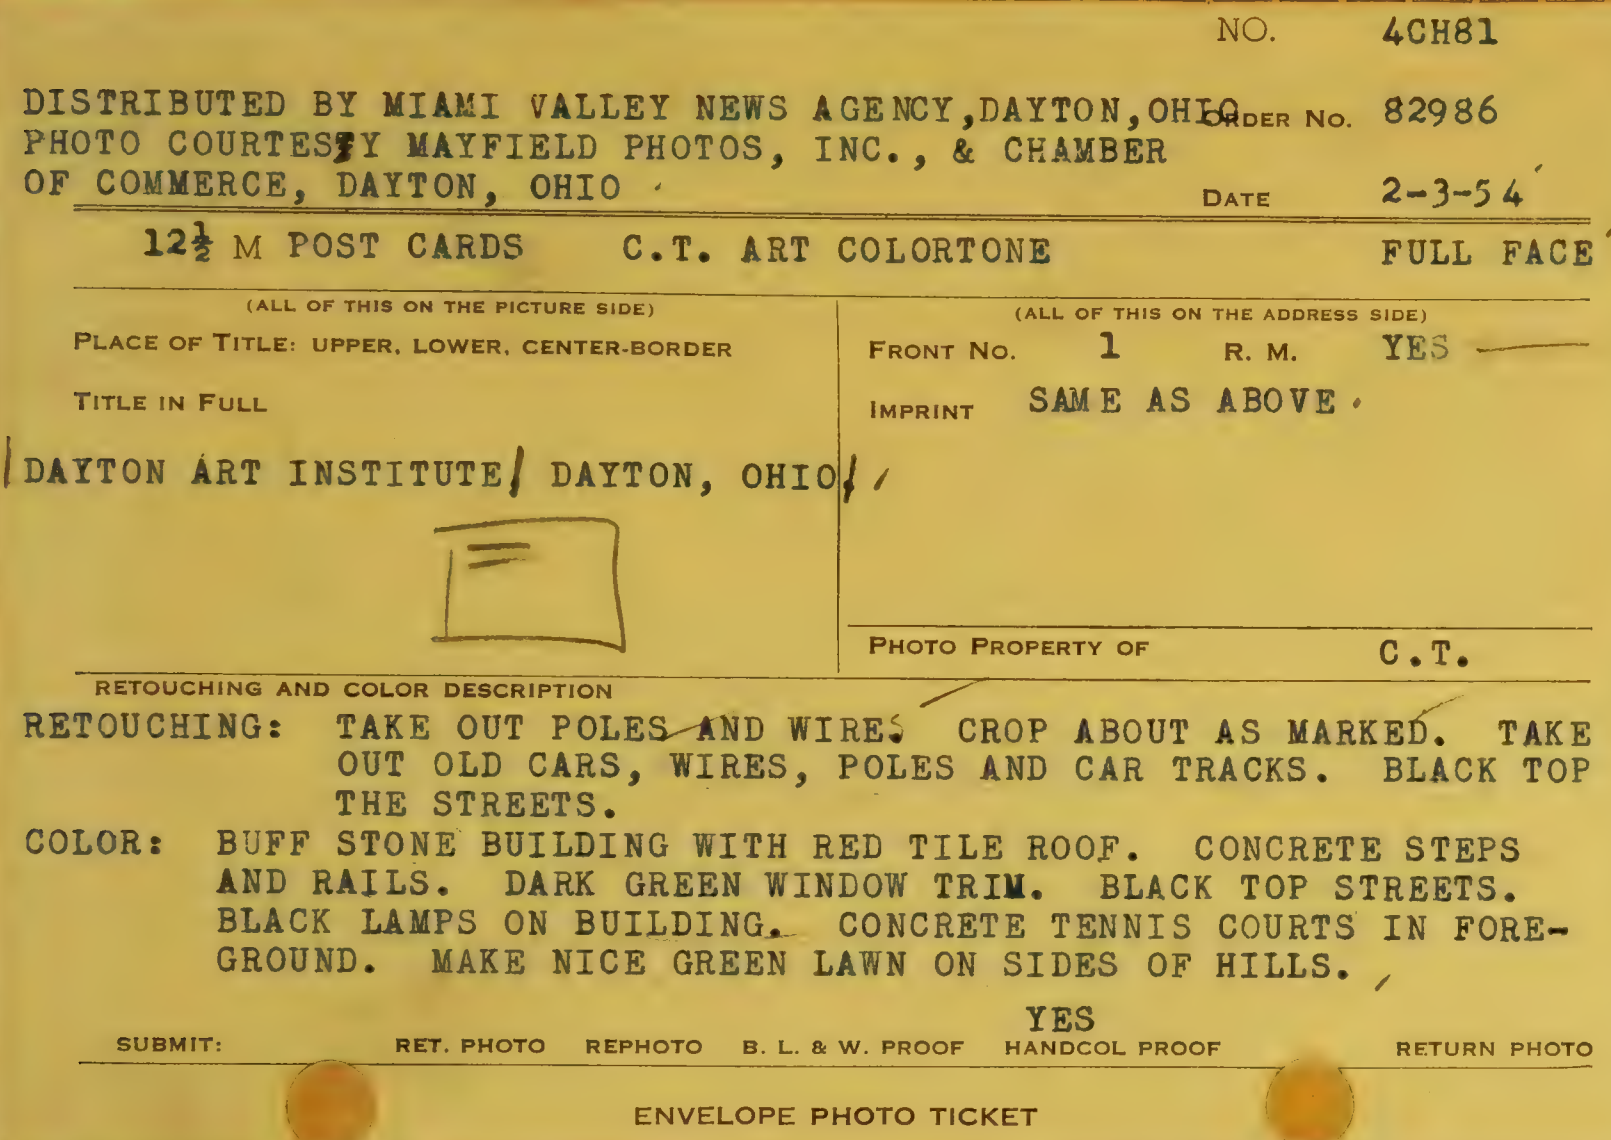 NO. 4CH81
DISTRIBUTED BY MIAMI VALLEY NEWS AGENCY,DAYTON,OHIO ORDER NO. 82986
PHOTO COURTESY MAYFIELD PHOTOS, INC., & CHAMBER
OF COMMERCE, DAYTON, OHIO DATE 2-3-54
12½ M POST CARDS C.T. ART COLORTONE FULL FACE
(ALL OF THIS ON THE PICTURE SIDE)
PLACE OF TITLE: UPPER, LOWER, CENTER-BORDER
TITLE IN FULL
DAYTON ART INSTITUTE/ DAYTON, OHIO/
(ALL OF THIS ON THE ADDRESS SIDE)
FRONT NO. 1 R. M. YES
IMPRINT SAME AS ABOVE
PHOTO PROPERTY OF C.T.
RETOUCHING AND COLOR DESCRIPTION
RETOUCHING: TAKE OUT POLES AND WIRES CROP ABOUT AS MARKED. TAKE
OUT OLD CARS, WIRES, POLES AND CAR TRACKS. BLACK TOP
THE STREETS.
COLOR: BUFF STONE BUILDING WITH RED TILE ROOF. CONCRETE STEPS
AND RAILS. DARK GREEN WINDOW TRIM. BLACK TOP STREETS.
BLACK LAMPS ON BUILDING. CONCRETE TENNIS COURTS IN FORE-
GROUND. MAKE NICE GREEN LAWN ON SIDES OF HILLS.
YES
SUBMIT: RET. PHOTO REPHOTO B. L. & W. PROOF HANDCOL PROOF RETURN PHOTO
ENVELOPE PHOTO TICKET